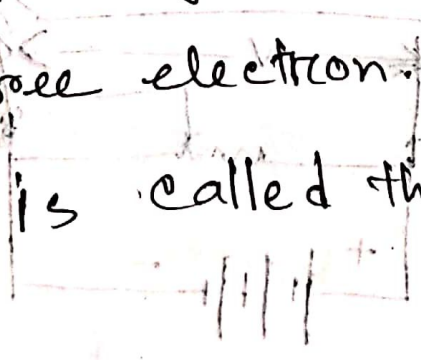 ree electron.
is called th